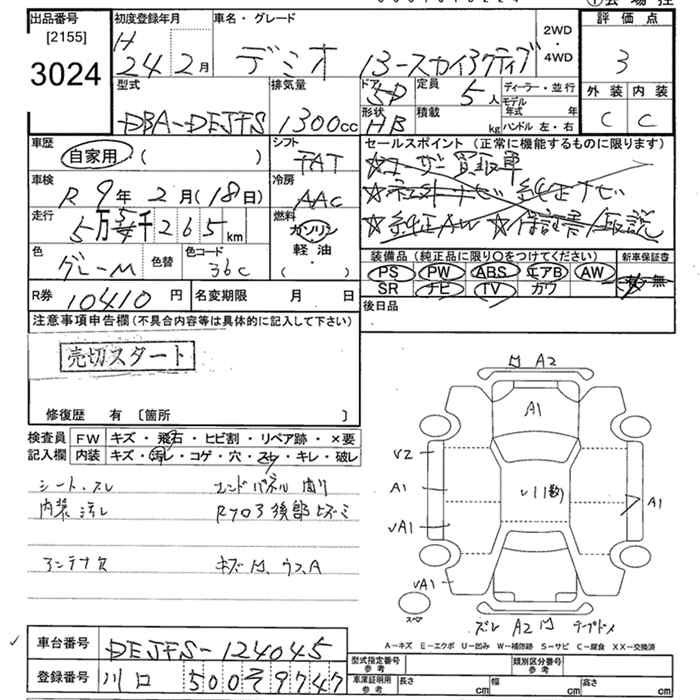 出品番号
[2155]
3024
初度登録年月
H 24 2月
車名・グレード
デミオ 13-スカイアクティブ
2WD
・
4WD
評価点
3
外装 内装
C C
型式
DBA-DEJFS
排気量
1300cc
ドア
5D
形状
HB
定員
5人
積載
kg
ディーラー・並行
モデル
年式 年
ハンドル 左・右
車歴
自家用 ( )
シフト
FAT
車検
R 9年 2月(18日)
冷房
AAC
走行
5万 千265km
燃料
ガソリン
軽油
( )
色
グレーM
色替
色コード
36C
R券 10410円
名変期限 月 日
セールスポイント (正常に機能するものに限ります)
☆ユーザー買取車
☆社外ナビ 純正ナビ
☆純正AW ☆保証書/取説
装備品 (純正品に限り○をつけてください)
PS PW ABS エアB AW
SR ナビ TV カワ
新車保証書
無
後日品
注意事項申告欄(不具合内容等は具体的に記入して下さい)
売切スタート
修復歴 有 〔箇所 〕
検査員 FW キズ・飛石・ヒビ割・リペア跡・×要
記入欄 内装 キズ・汚レ・コゲ・穴・スレ・キレ・破レ
シート.スレ
内装汚レ
アンテナ欠
エンドパネル曲り
Rフロア後部ヒズミ
A2
A1
V2
A1
VA1
VA1
A1
スペア
ズレ A2
A-キズ E-エクボ U-凹み W-補修跡 S-サビ C-腐食 XX-交換済
車台番号 DEJFS-124045
登録番号 川口 500 そ 9747
型式指定番号
参考
類別区分番号
参考
車庫証明用
参考
長さ cm 幅 cm 高さ cm